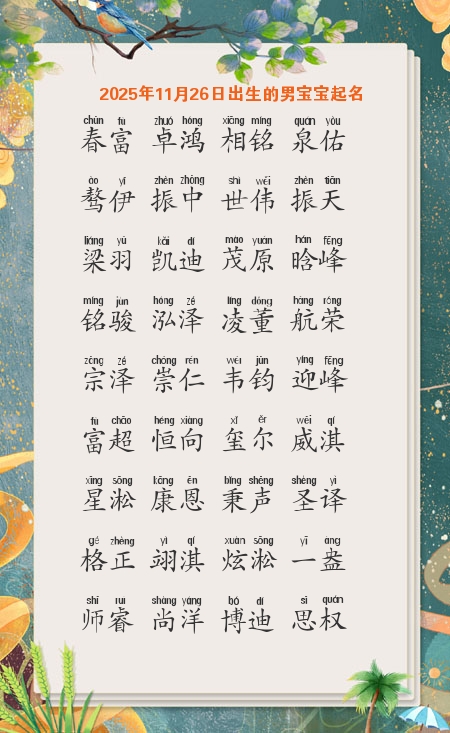 2025年11月26日出生的男宝宝起名
chūn fù zhuó hóng xiāng míng quán yòu
春富 卓鸿 相铭 泉佑
ào yī zhèn zhōng shì wěi zhèn tiān
骜伊 振中 世伟 振天
liáng yǔ kǎi dí mào yuán hán fēng
梁羽 凯迪 茂原 晗峰
míng jùn hóng zé líng dǒng háng róng
铭骏 泓泽 凌董 航荣
zōng zé chóng rén wéi jūn yíng fēng
宗泽 崇仁 韦钧 迎峰
fù chāo héng xiàng xǐ ěr wēi qí
富超 恒向 玺尔 威淇
xīng sōng kāng ēn bǐng shēng shèng yì
星淞 康恩 秉声 圣译
gé zhèng yì qí xuàn sōng yī àng
格正 翊淇 炫淞 一盎
shī ruì shàng yáng bó dí sī quán
师睿 尚洋 博迪 思权